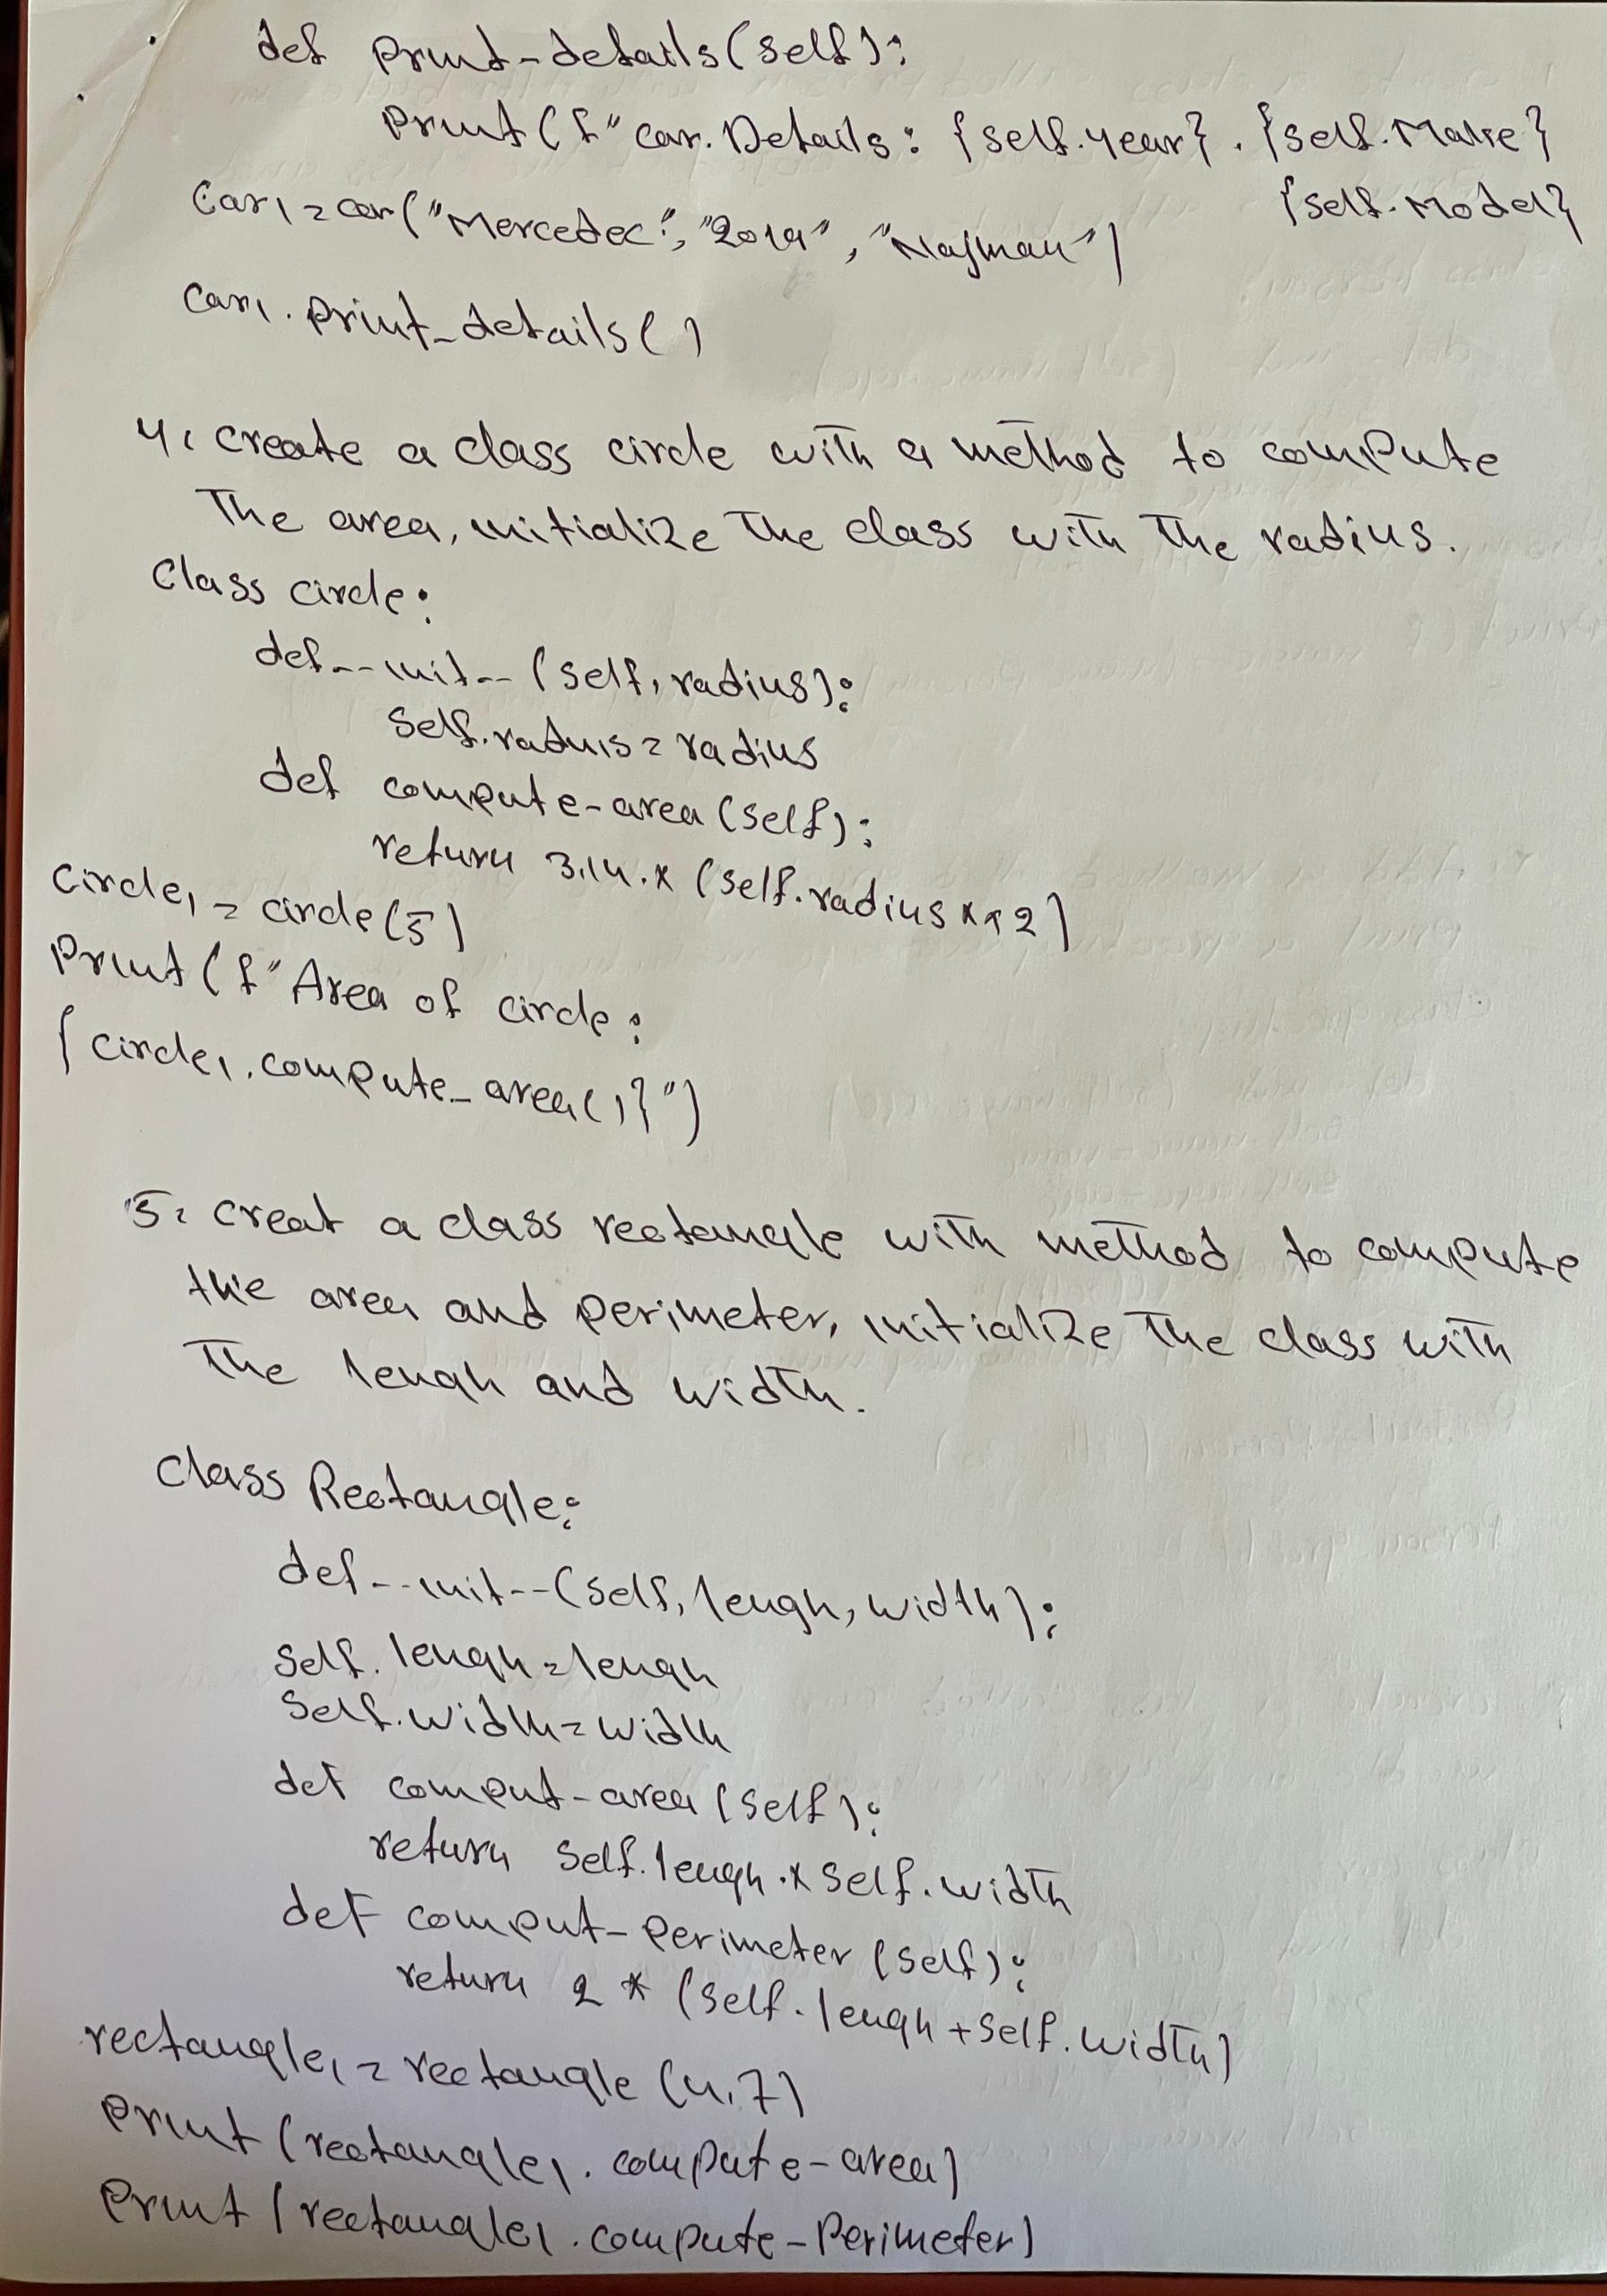 def print-details(self):
print(f"car.Details: {self.year}. {self.Make}
{self.Model}
Car1=car("Mercedec", "2019", "Najman")
car1.print_details()
4. create a class circle with a method to compute
The area, initialize the class with the radius.
Class circle:
def--init--(self, radius):
self.raduis=radius
def compute-area(self):
return 3.14.*(self.radius**2)
Circle1=circle(5)
Print(f"Area of circle:
{circle1.compute_area()}")
5. creat a class rectangle with method to compute
the area and perimeter, initialize the class with
The lengh and width.
Class Rectangle:
def--init--(self, lengh, width):
self.lengh=lengh
self.width=width
def comput-area(self):
return self.lengh.*self.width
def comput-perimeter(self):
return 2*(self.lengh+self.width)
rectangle1=rectangle(4,7)
Print(rectangle1.compute-area)
Print(rectangle1.compute-Perimeter)